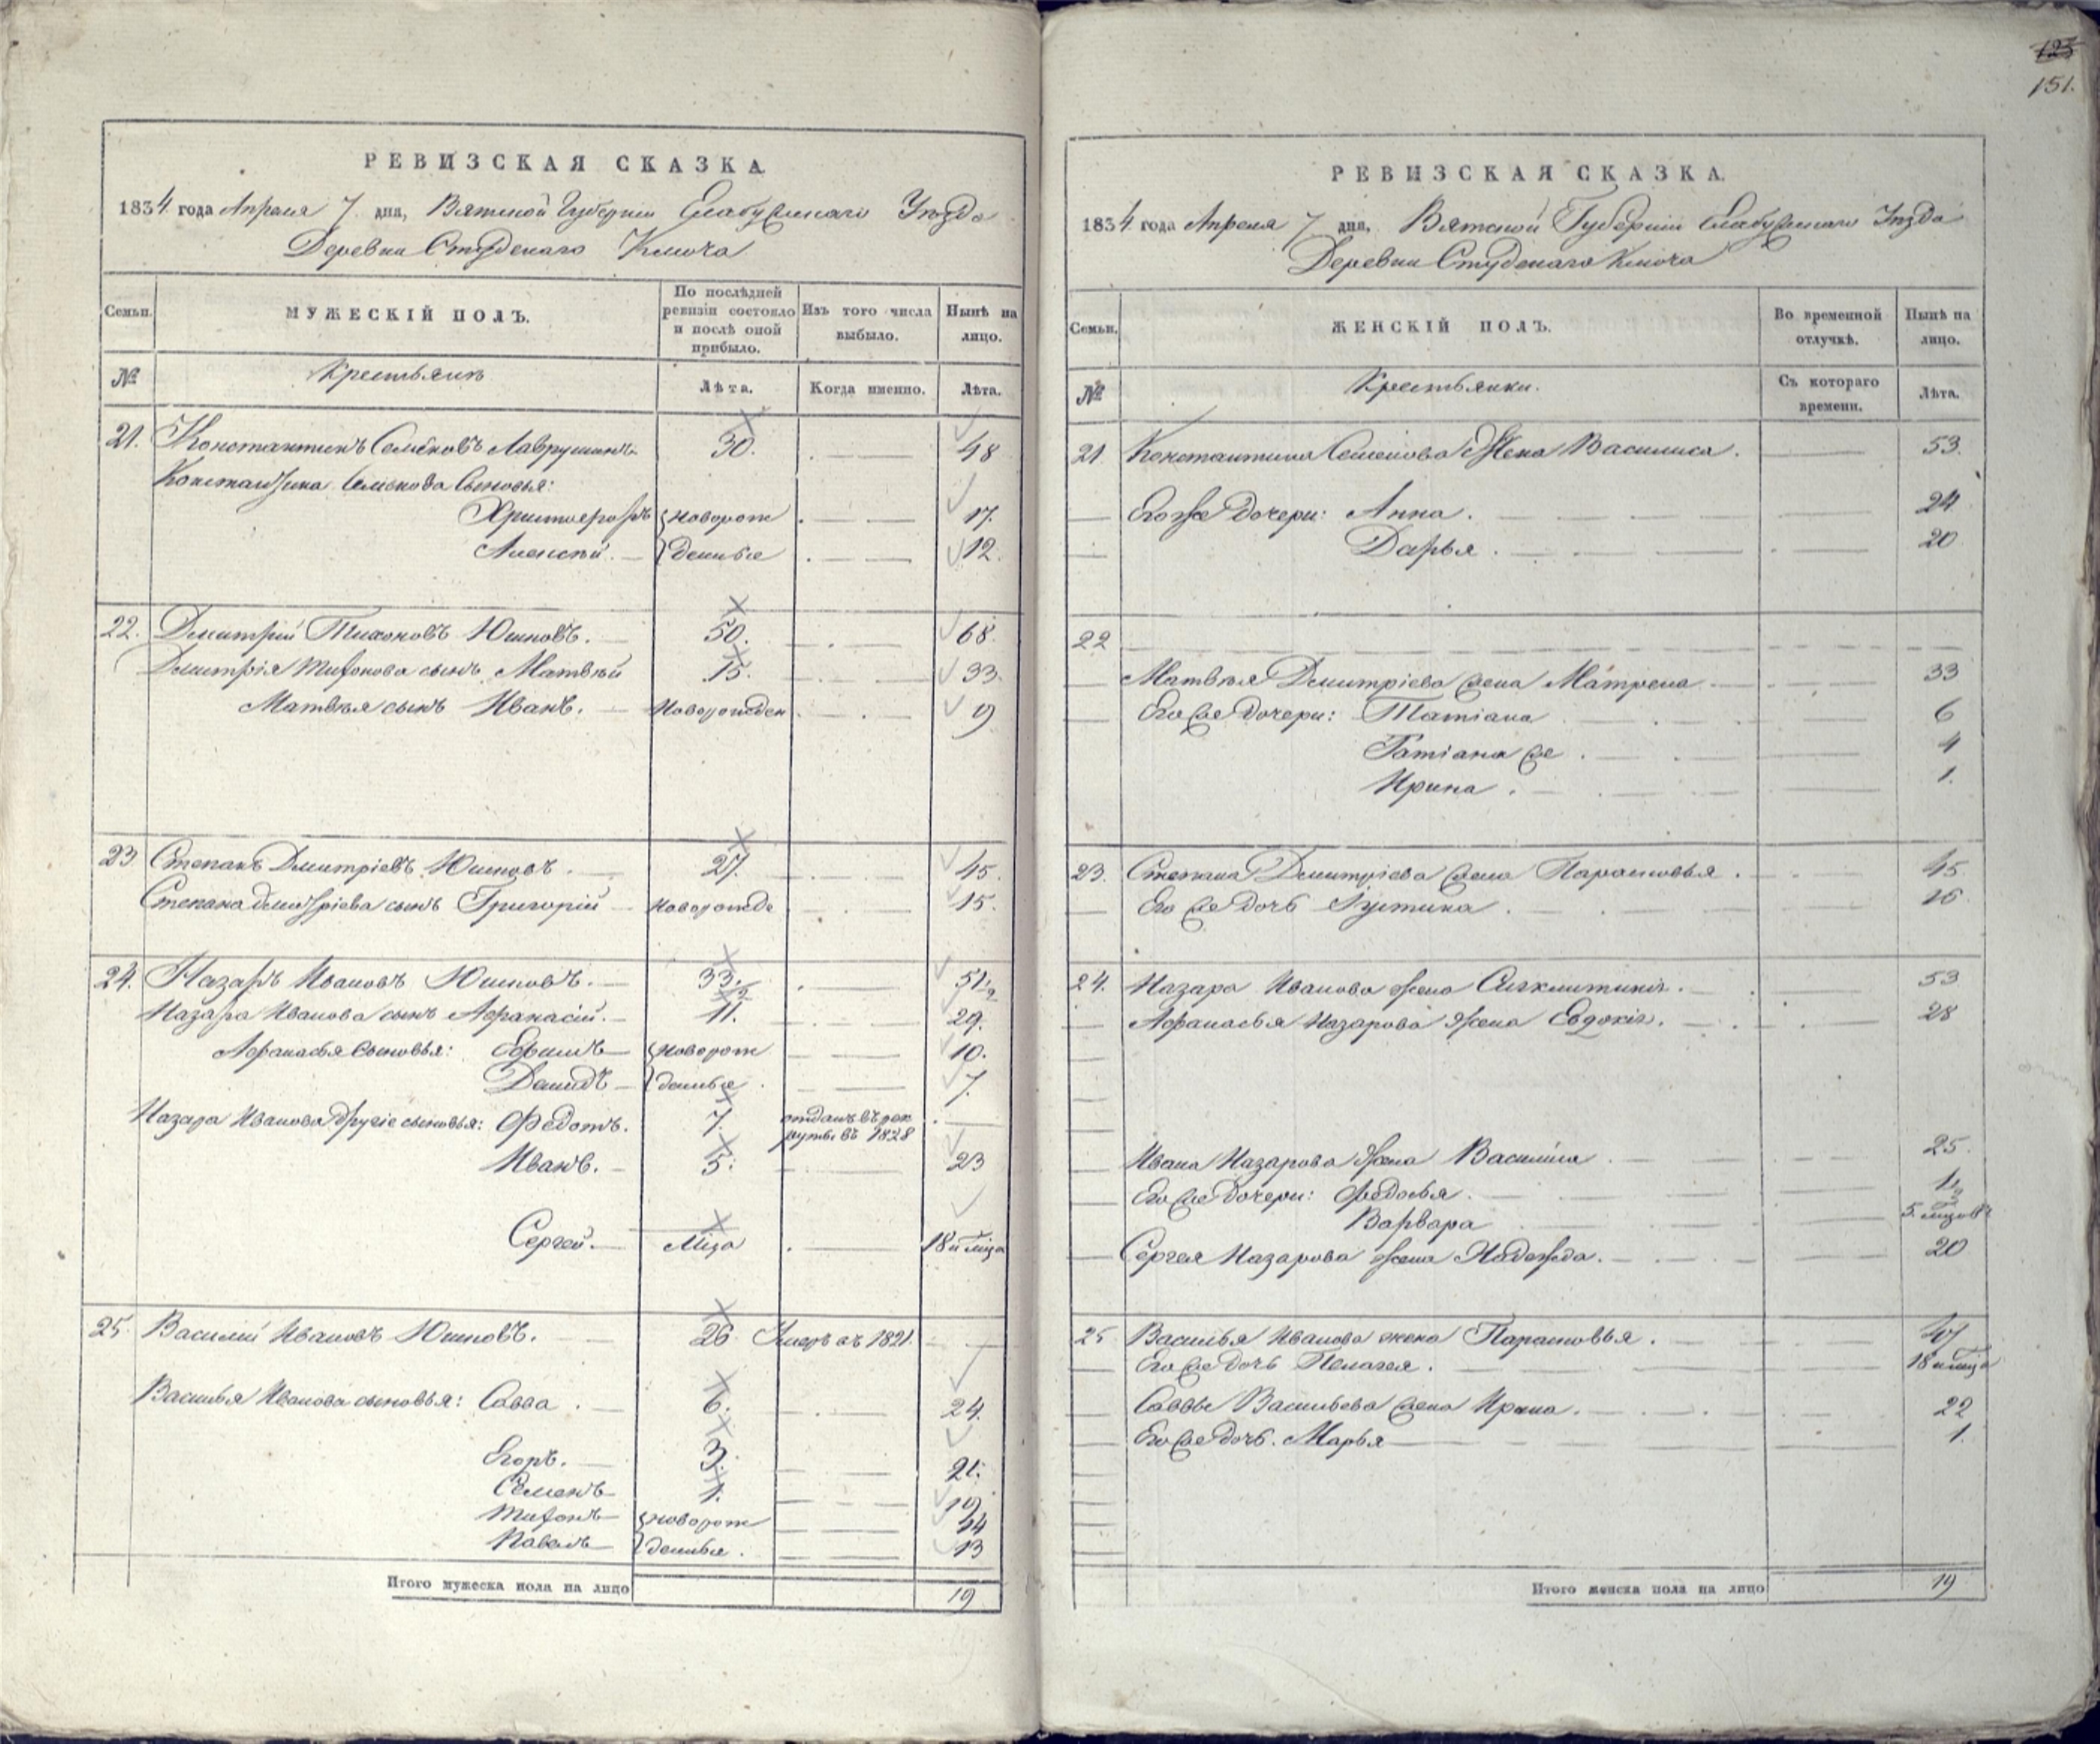 РЕВИЗСКАЯ СКАЗКА.
1834 года Апреля 7 дня, Вятской Губернии Елабужскаго Уѣзда
Деревни Студенаго Ключа
Семьи.
МУЖЕСКІЙ ПОЛЪ.
По послѣдней ревизіи состояло и послѣ оной прибыло.
Изъ того числа выбыло.
Нынѣ на лицо.
№
Крестьянъ
Лѣта.
Когда именно.
Лѣта.
21. Константинъ Семеновъ Лаврушинъ. 30. 48
Константина Семенова Сыновья:
Христофоръ новорож 17.
Алексѣй. денные 12.
22. Дмитрій Тихоновъ Юшковъ. 50. 68.
Дмитрія Тихонова сынъ Матвѣй 15. 33.
Матвѣя сынъ Иванъ. Новорожден 9
23 Степанъ Дмитріевъ Юшковъ. 27. 45.
Степана Дмитріева сынъ Григорій новорожде 15.
24. Назаръ Ивановъ Юшковъ. 33. 51½
Назара Иванова сынъ Афанасій. 11. 29.
Афанасья Сыновья: Ефимъ новорож 10.
Демидъ денные. 7.
Назара Иванова другіе сыновья: Федотъ. 7. отданъ въ рек
руты въ 1828
Иванъ. 5. 23
Сергей. Мѣца 18 и мѣца
25. Василій Ивановъ Юшковъ. 26 Умеръ въ 1821.
Василья Иванова сыновья: Савва. 6. 24.
Егоръ. 3. 21.
Семенъ 1. 19
Тихонъ новорож 14
Павелъ денные. 13
Итого мужеска пола на лицо 19
123
151.
РЕВИЗСКАЯ СКАЗКА.
1834 года Апреля 7 дня, Вятской Губерніи Елабужскаго Уѣзда
Деревни Студенаго Ключа
Семьи.
ЖЕНСКІЙ ПОЛЪ.
Во временной отлучкѣ.
Нынѣ на лицо.
№
Крестьянки.
Съ котораго времени.
Лѣта.
21. Константина Семенова Жена Василиса. 53.
Егоже Дочери: Анна. 24
Дарья. 20
22
Матвѣя Дмитріева жена Матрена 33
Егоже Дочери: Татіана 6
Татіана же. 4
Ирина. 1.
23. Степана Дмитріева жена Парасковья. 45
Его же дочь Густина. 16
24. Назара Иванова жена 53
Афанасья Назарова жена Евдокія. 28
Ивана Назарова жена Василиса 25.
Егоже Дочери: Федосья. 1½
Варвара 5. мѣцовъ
Сергея Назарова жена Надежда. 20
25 Василья Иванова жена Парасковья. 47
Егоже дочь Пелагея. 18 и мѣца
Саввы Васильева жена Ирина. 22
Егоже дочь. Марья 1.
Итого женска пола на лицо 19